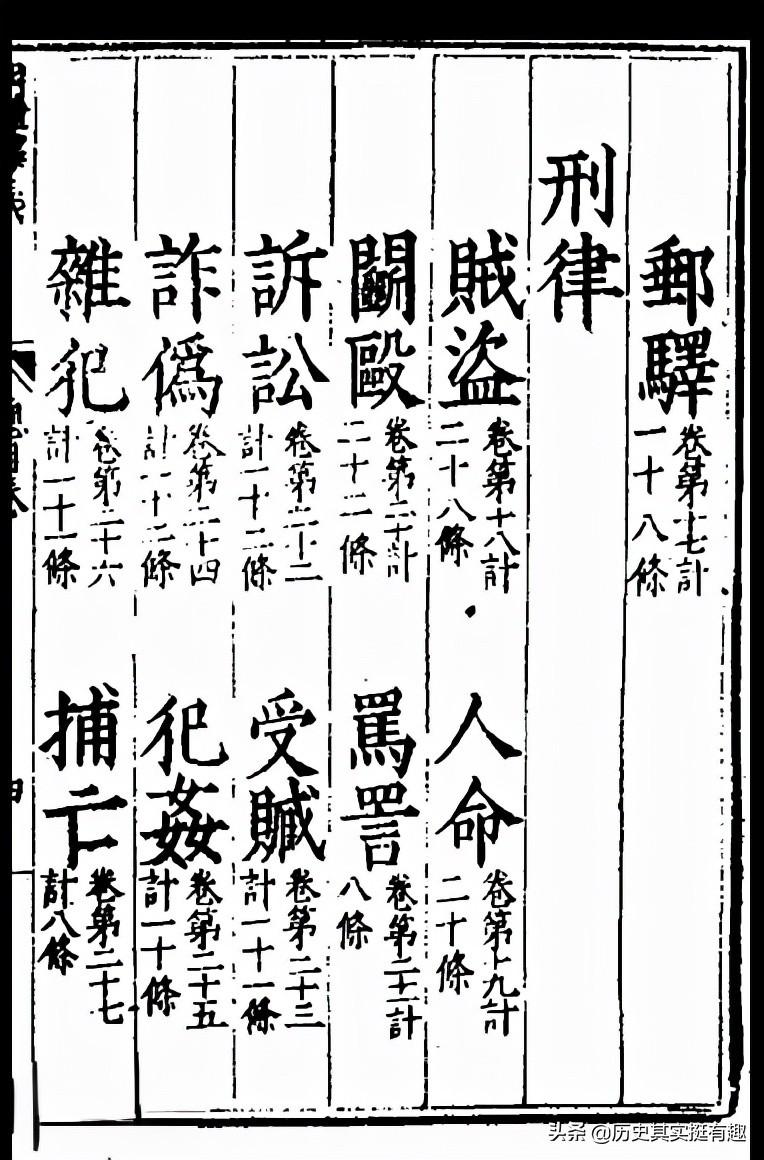 郵驛 卷第十七計一十八條
刑律
賊盜 卷第十八計二十八條
人命 卷第十九計二十條
鬭毆 卷第二十計二十二條
罵詈 卷第二十一計八條
訴訟 卷第二十二計一十二條
受贓 卷第二十三計一十一條
詐僞 卷第二十四計一十二條
犯姦 卷第二十五計一十條
雜犯 卷第二十六計一十一條
捕亡 卷第二十七計八條
头条 @历史其实挺有趣